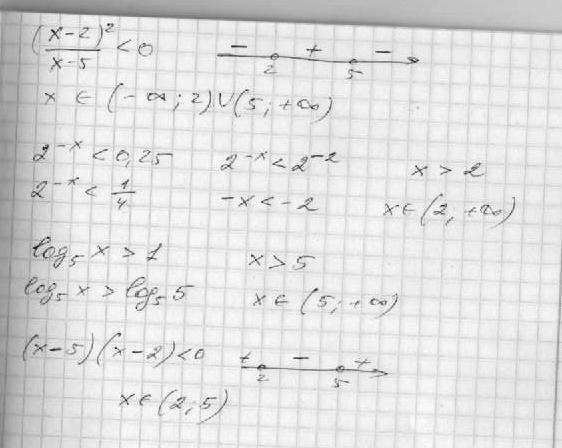 (x-2)²/(x-5) < 0   - 2 + 5 -
x ∈ (-∞; 2) ∪ (5; +∞)
2^{-x} < 0,25   2^{-x} < 2^{-2}   x > 2
2^{-x} < 1/4   -x < -2   x ∈ (2, +∞)
log₅ x > 1   x > 5
log₅ x > log₅ 5   x ∈ (5; +∞)
(x-5)(x-2) < 0   + 2 - 5 +
x ∈ (2; 5)